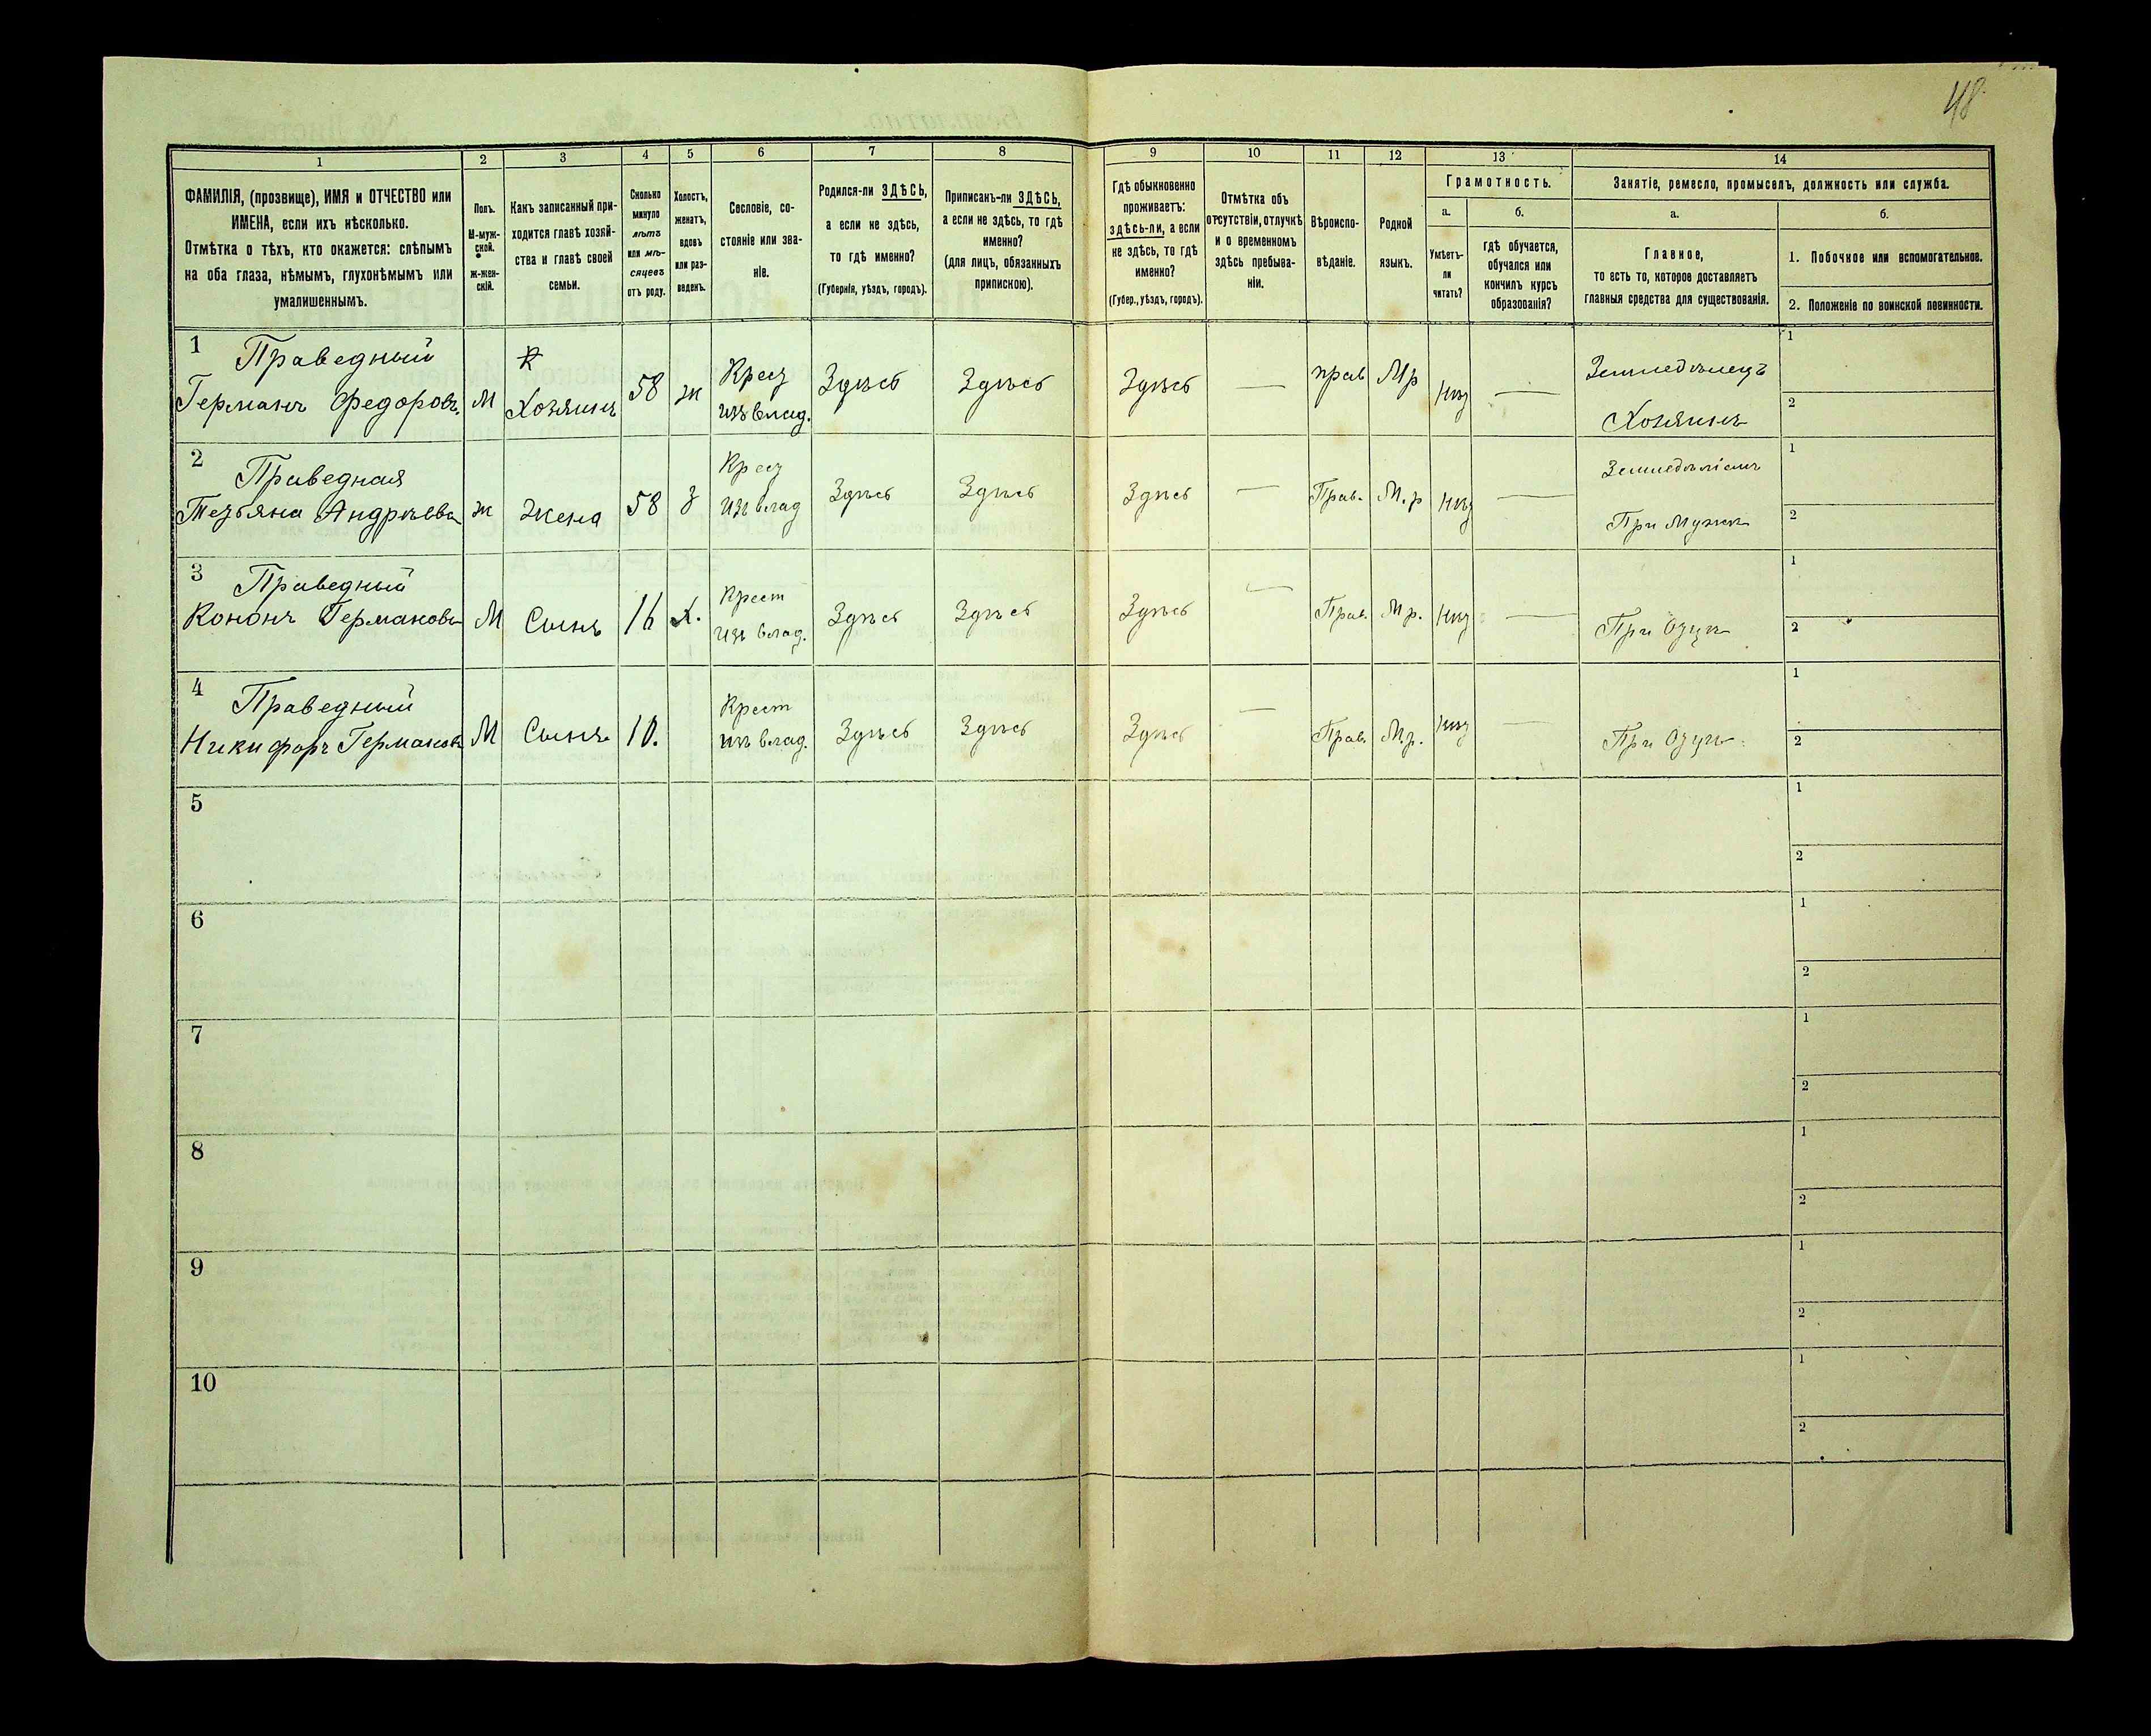 48
1 2 3 4 5 6 7 8 9 10 11 12 13 14
ФАМИЛІЯ, (прозвище), ИМЯ и ОТЧЕСТВО или
ИМЕНА, если ихъ нѣсколько.
Отмѣтка о тѣхъ, кто окажется: слѣпымъ
на оба глаза, нѣмымъ, глухонѣмымъ или
умалишеннымъ.
Полъ.
М-муж-
ской.
ж-жен-
скій.
Какъ записанный при-
ходится главѣ хозяй-
ства и главѣ своей
семьи.
Сколько
минуло
лѣтъ
или мѣ-
сяцевъ
отъ роду.
Холостъ,
женатъ,
вдовъ
или раз-
веденъ.
Сословіе, со-
стояніе или зва-
ніе.
Родился-ли ЗДѢСЬ,
а если не здѣсь,
то гдѣ именно?
(Губернія, уѣздъ, городъ).
Приписанъ-ли ЗДѢСЬ,
а если не здѣсь, то гдѣ
именно?
(для лицъ, обязанныхъ
припискою).
Гдѣ обыкновенно
проживаетъ:
здѣсь-ли, а если
не здѣсь, то гдѣ
именно?
(Губер., уѣздъ, городъ).
Отмѣтка объ
отсутствіи, отлучкѣ
и о временномъ
здѣсь пребыва-
ніи.
Вѣроиспо-
вѣданіе.
Родной
языкъ.
Грамотность.
а.
Умѣетъ-
ли
читать?
б.
гдѣ обучается,
обучался или
кончилъ курсъ
образованія?
Занятіе, ремесло, промыселъ, должность или служба.
а.
Главное,
то есть то, которое доставляетъ
главныя средства для существованія.
б.
1. Побочное или вспомогательное.
2. Положеніе по воинской повинности.
1 Праведный
Германъ Федоровъ. М Хозяинъ 58 ж Крез
изъ влад. Здѣсь Здѣсь Здѣсь — прав Мр Низ — Земледѣлецъ
Хозяинъ 1 2
2 Праведная
Тезьяна Андрѣева ж Жена 58 З Крез
Изъ влад Здѣсь Здѣсь Здѣсь — Прав. М.р Низ — Земледѣліемъ
При Мужѣ 1 2
3 Праведный
Кононъ Германовъ М Сынъ 16 Х. Крест
изъ влад. Здѣсь Здѣсь Здѣсь — Прав. Мр. Низ — При Озцѣ 1 2
4 Праведный
Никифоръ Германовъ М Сынъ 10. Крест
изъ влад. Здѣсь Здѣсь Здѣсь — Прав. М.р. Низ — При Озцѣ 1 2
5 1 2
6 1 2
7 1 2
8 1 2
9 1 2
10 1 2